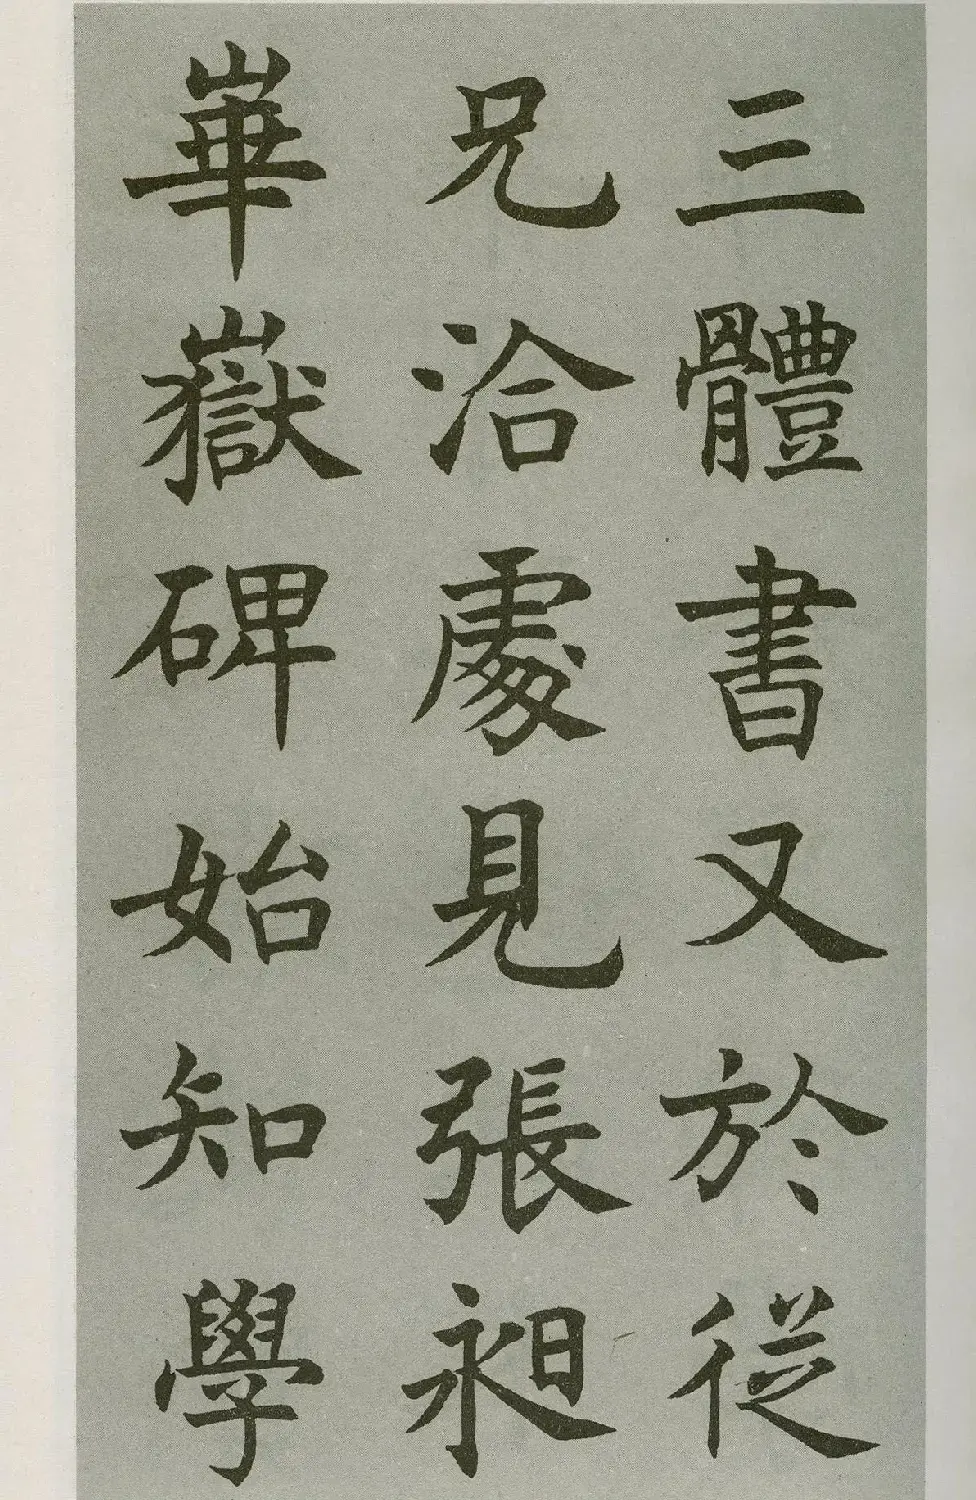 三體書又於從
兄洽處見張昶
華嶽碑始知學